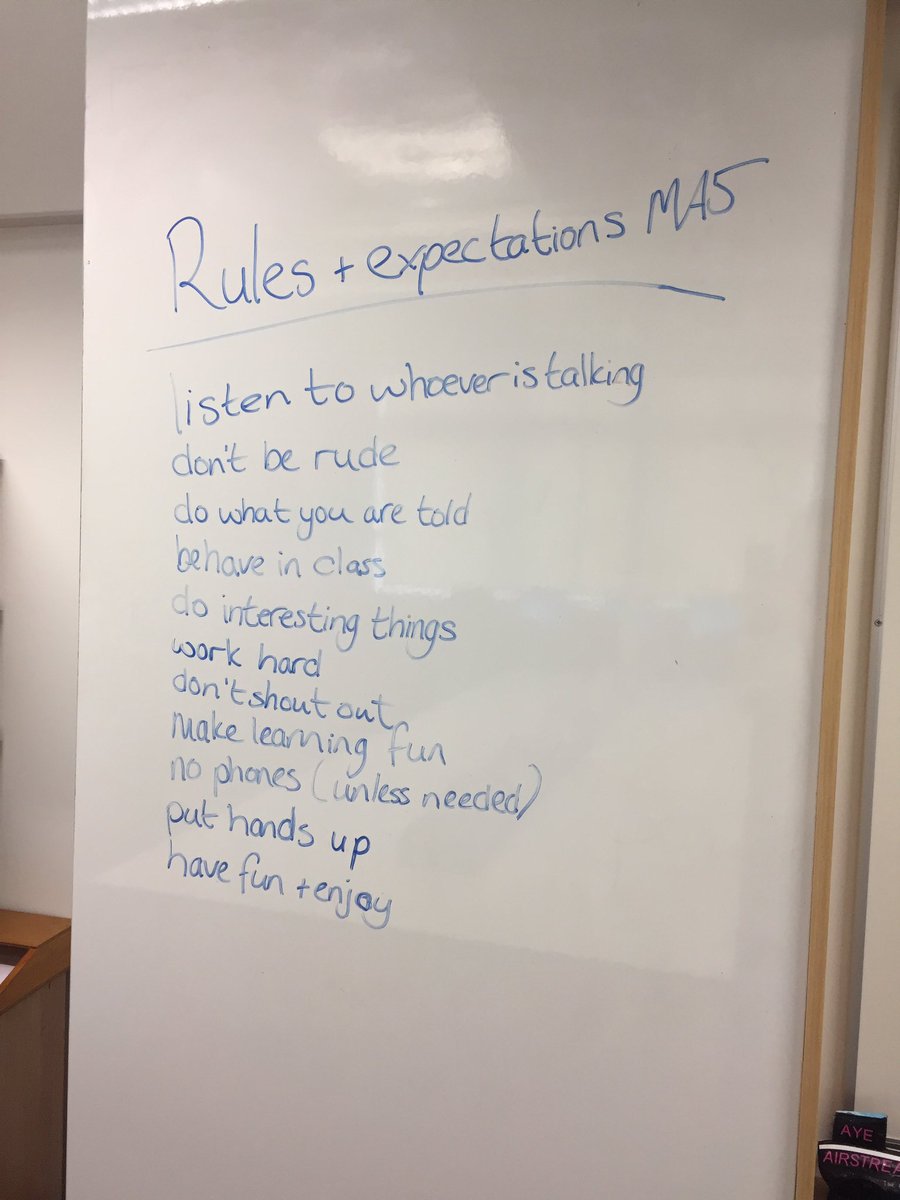 Rules + expectations MA5
listen to whoever is talking
don't be rude
do what you are told
behave in class
do interesting things
work hard
don't shout out
Make learning fun
no phones (unless needed)
put hands up
have fun + enjoy
AYE
AIRSTREA